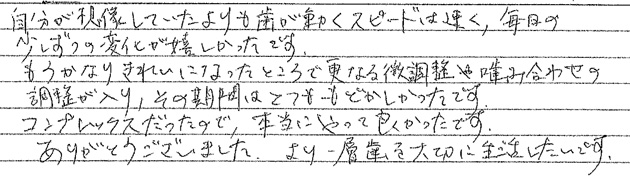 自分が想像していたよりも歯が動くスピードは速く，毎日の
少しずつの変化が嬉しかったです．
もうかなりきれいになったところで更なる微調整や噛み合わせの
調整が入り，その期間はとてももどかしかったです．
コンプレックスだったので，本当にやって良かったです．
ありがとうございました．より一層歯を大切に生活したいです．